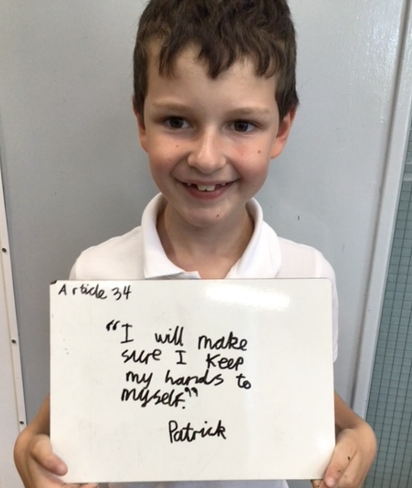 Article 34
"I will make
sure I keep
my hands to
myself."
Patrick